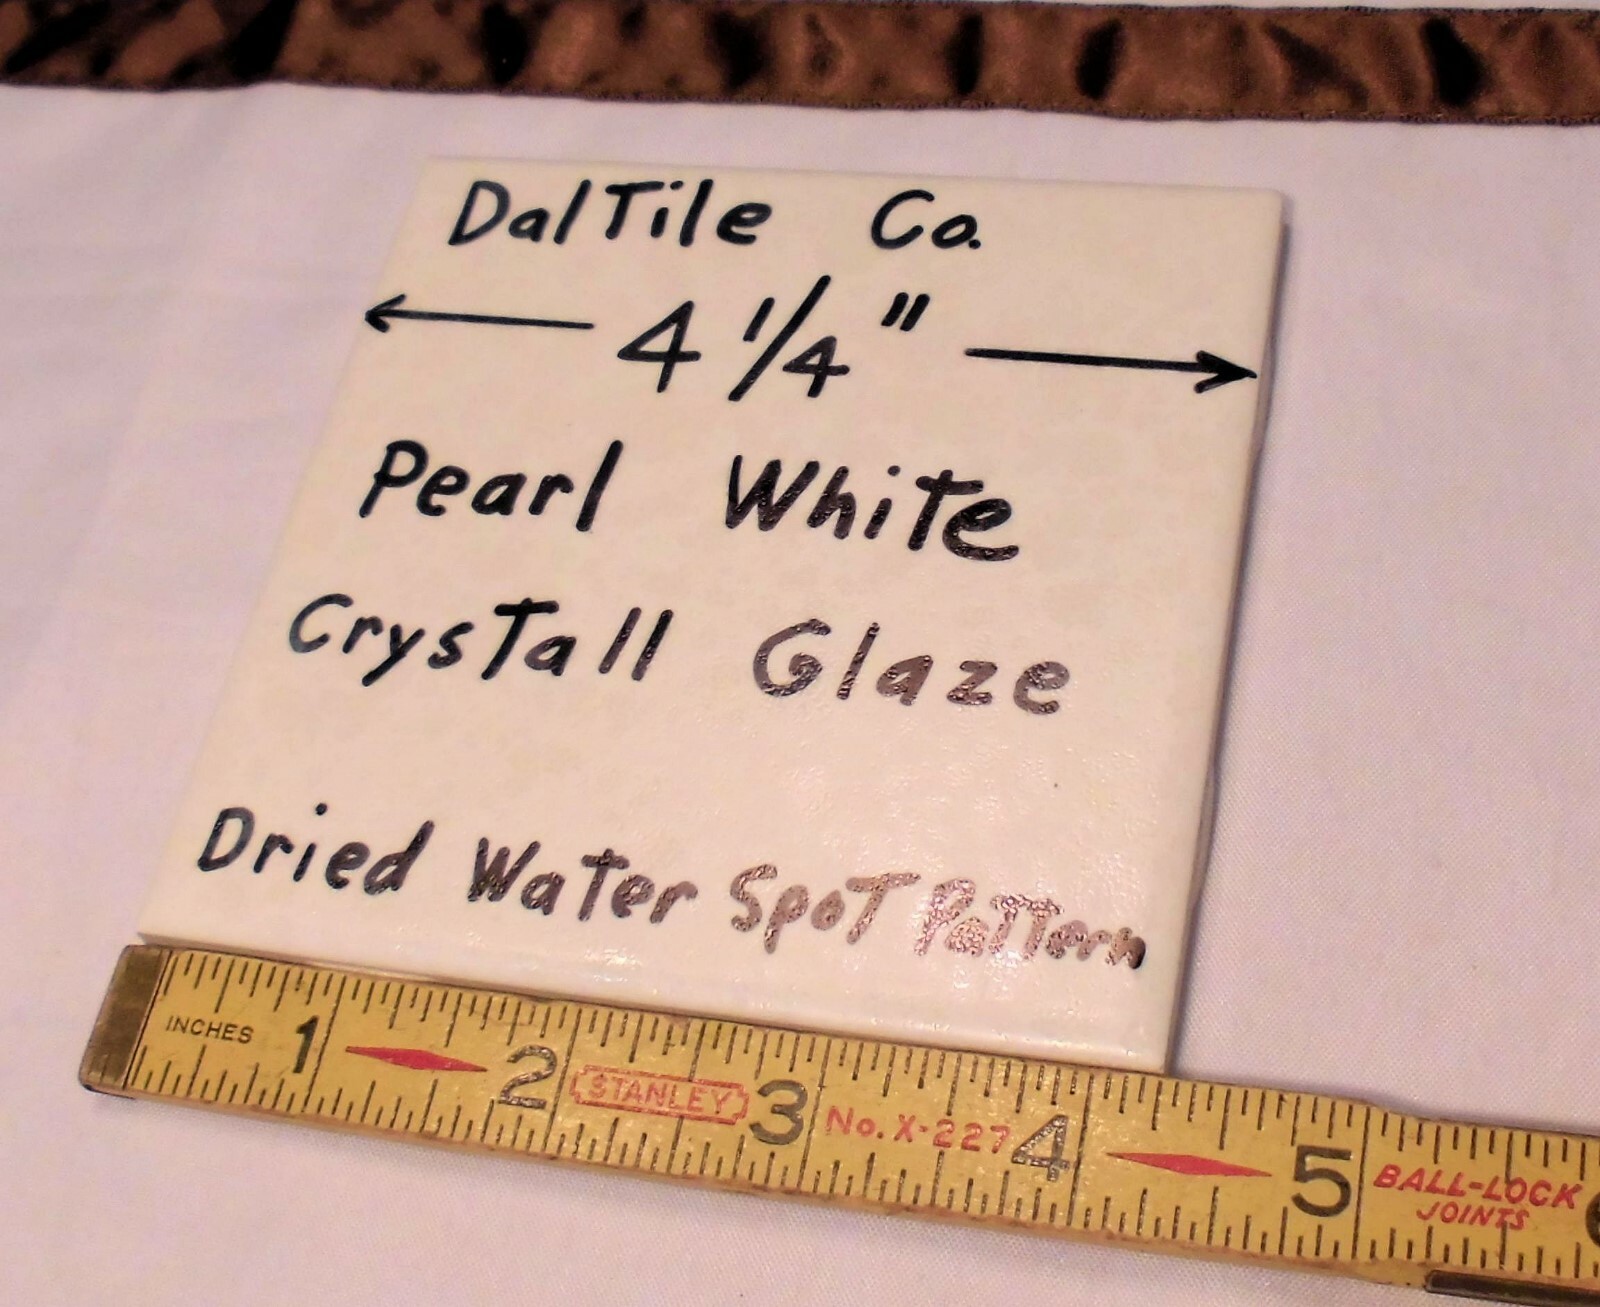 DalTile Co.
4 1/4"
Pearl White
Crystall Glaze
Dried Water Spot Pattern
INCHES 1 2 STANLEY 3 No. X-227 4 5 BALL-LOCK
JOINTS